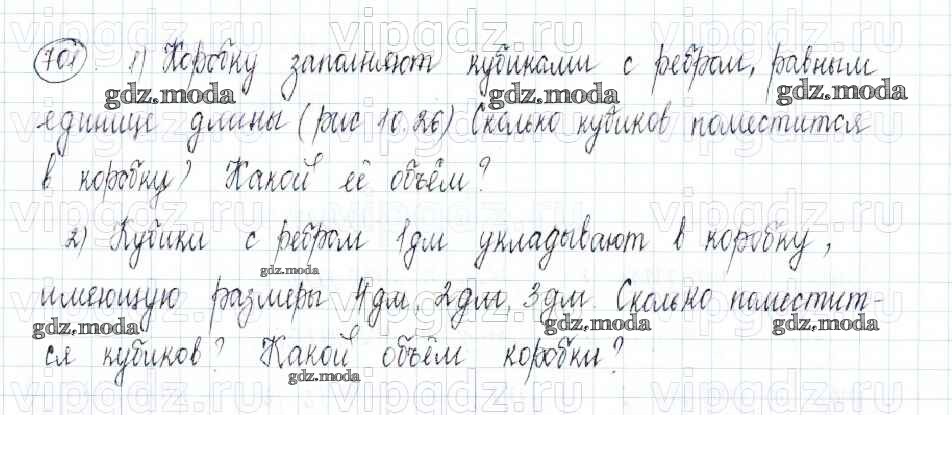 701. 1) Коробку заполняют кубиками с ребром, равным
gdz.moda gdz.moda
единице длины (рис 10.26) Сколько кубиков поместится
в коробку? Какой её объём?
2) Кубики с ребром 1дм укладывают в коробку,
gdz.moda
имеющую размеры 4дм, 2дм, 3дм. Сколько поместит-
gdz.moda gdz.moda gdz.moda
ся кубиков? Какой объём коробки?
gdz.moda
vipgdz.ru vipgdz.ru vipgdz.ru